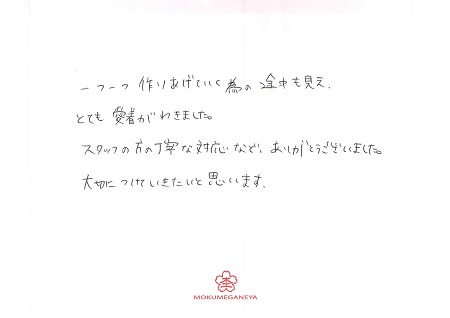 一つ一つ 作りあげていく為の途中も見え、
とても愛着がわきました。
スタッフの方の丁寧な対応など、ありがとうございました。
大切につけていきたいと思います。
杢
MOKUMEGANEYA